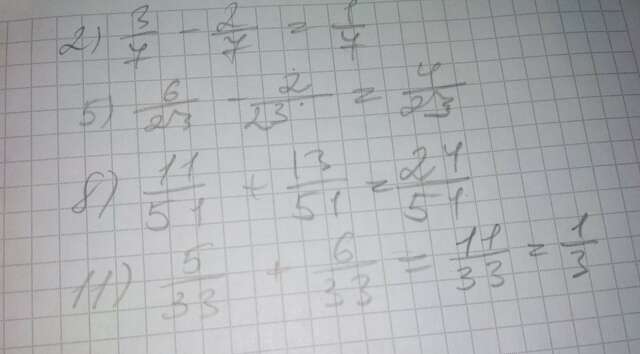 2) 3/7 - 2/7 = 1/7
5) 6/23 - 2/23 = 4/23
8) 11/51 + 13/51 = 24/51
11) 5/33 + 6/33 = 11/33 = 1/3